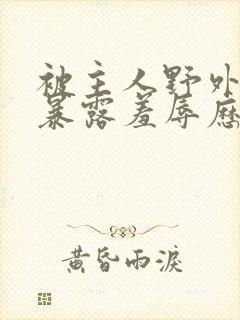 被主人野外
暴露羞辱应
黄昏雨泪